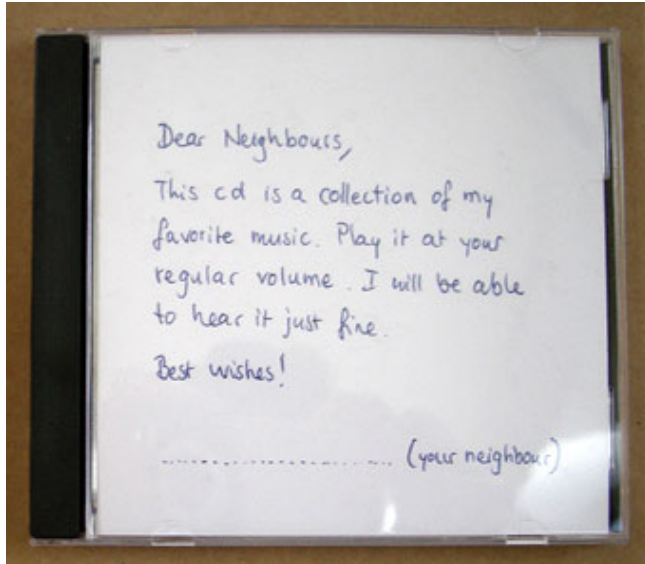 Dear Neighbours,
This cd is a collection of my
favorite music. Play it at your
regular volume. I will be able
to hear it just fine.
Best wishes!
........................ (your neighbour)